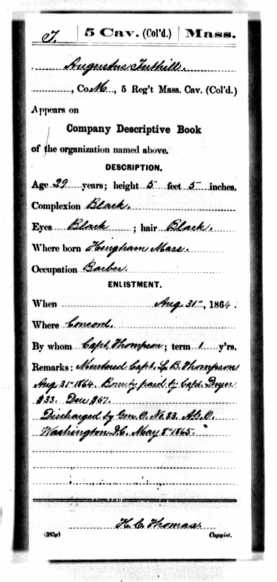 T. 5 Cav. (Col'd.) Mass.
Augustus Tuthill
, Co. M, 5 Reg't Mass. Cav. (Col'd.)
Appears on
Company Descriptive Book
of the organization named above.
DESCRIPTION.
Age 29 years; height 5 feet 5 inches.
Complexion Black.
Eyes Black ; hair Black.
Where born Hingham Mass.
Occupation Barber.
ENLISTMENT.
When Aug. 31st, 1864.
Where Concord.
By whom Capt. Thompson; term 1 y'rs.
Remarks: Mustered Capt. B. Thompson
Aug 31st 1864. Bounty paid by Capt.
$33. Due $67.
Discharged by Gen. O. No. 33. A.G.O.
Washington D.C. May 8th 1865.
H. C. Thomas
Copyist.